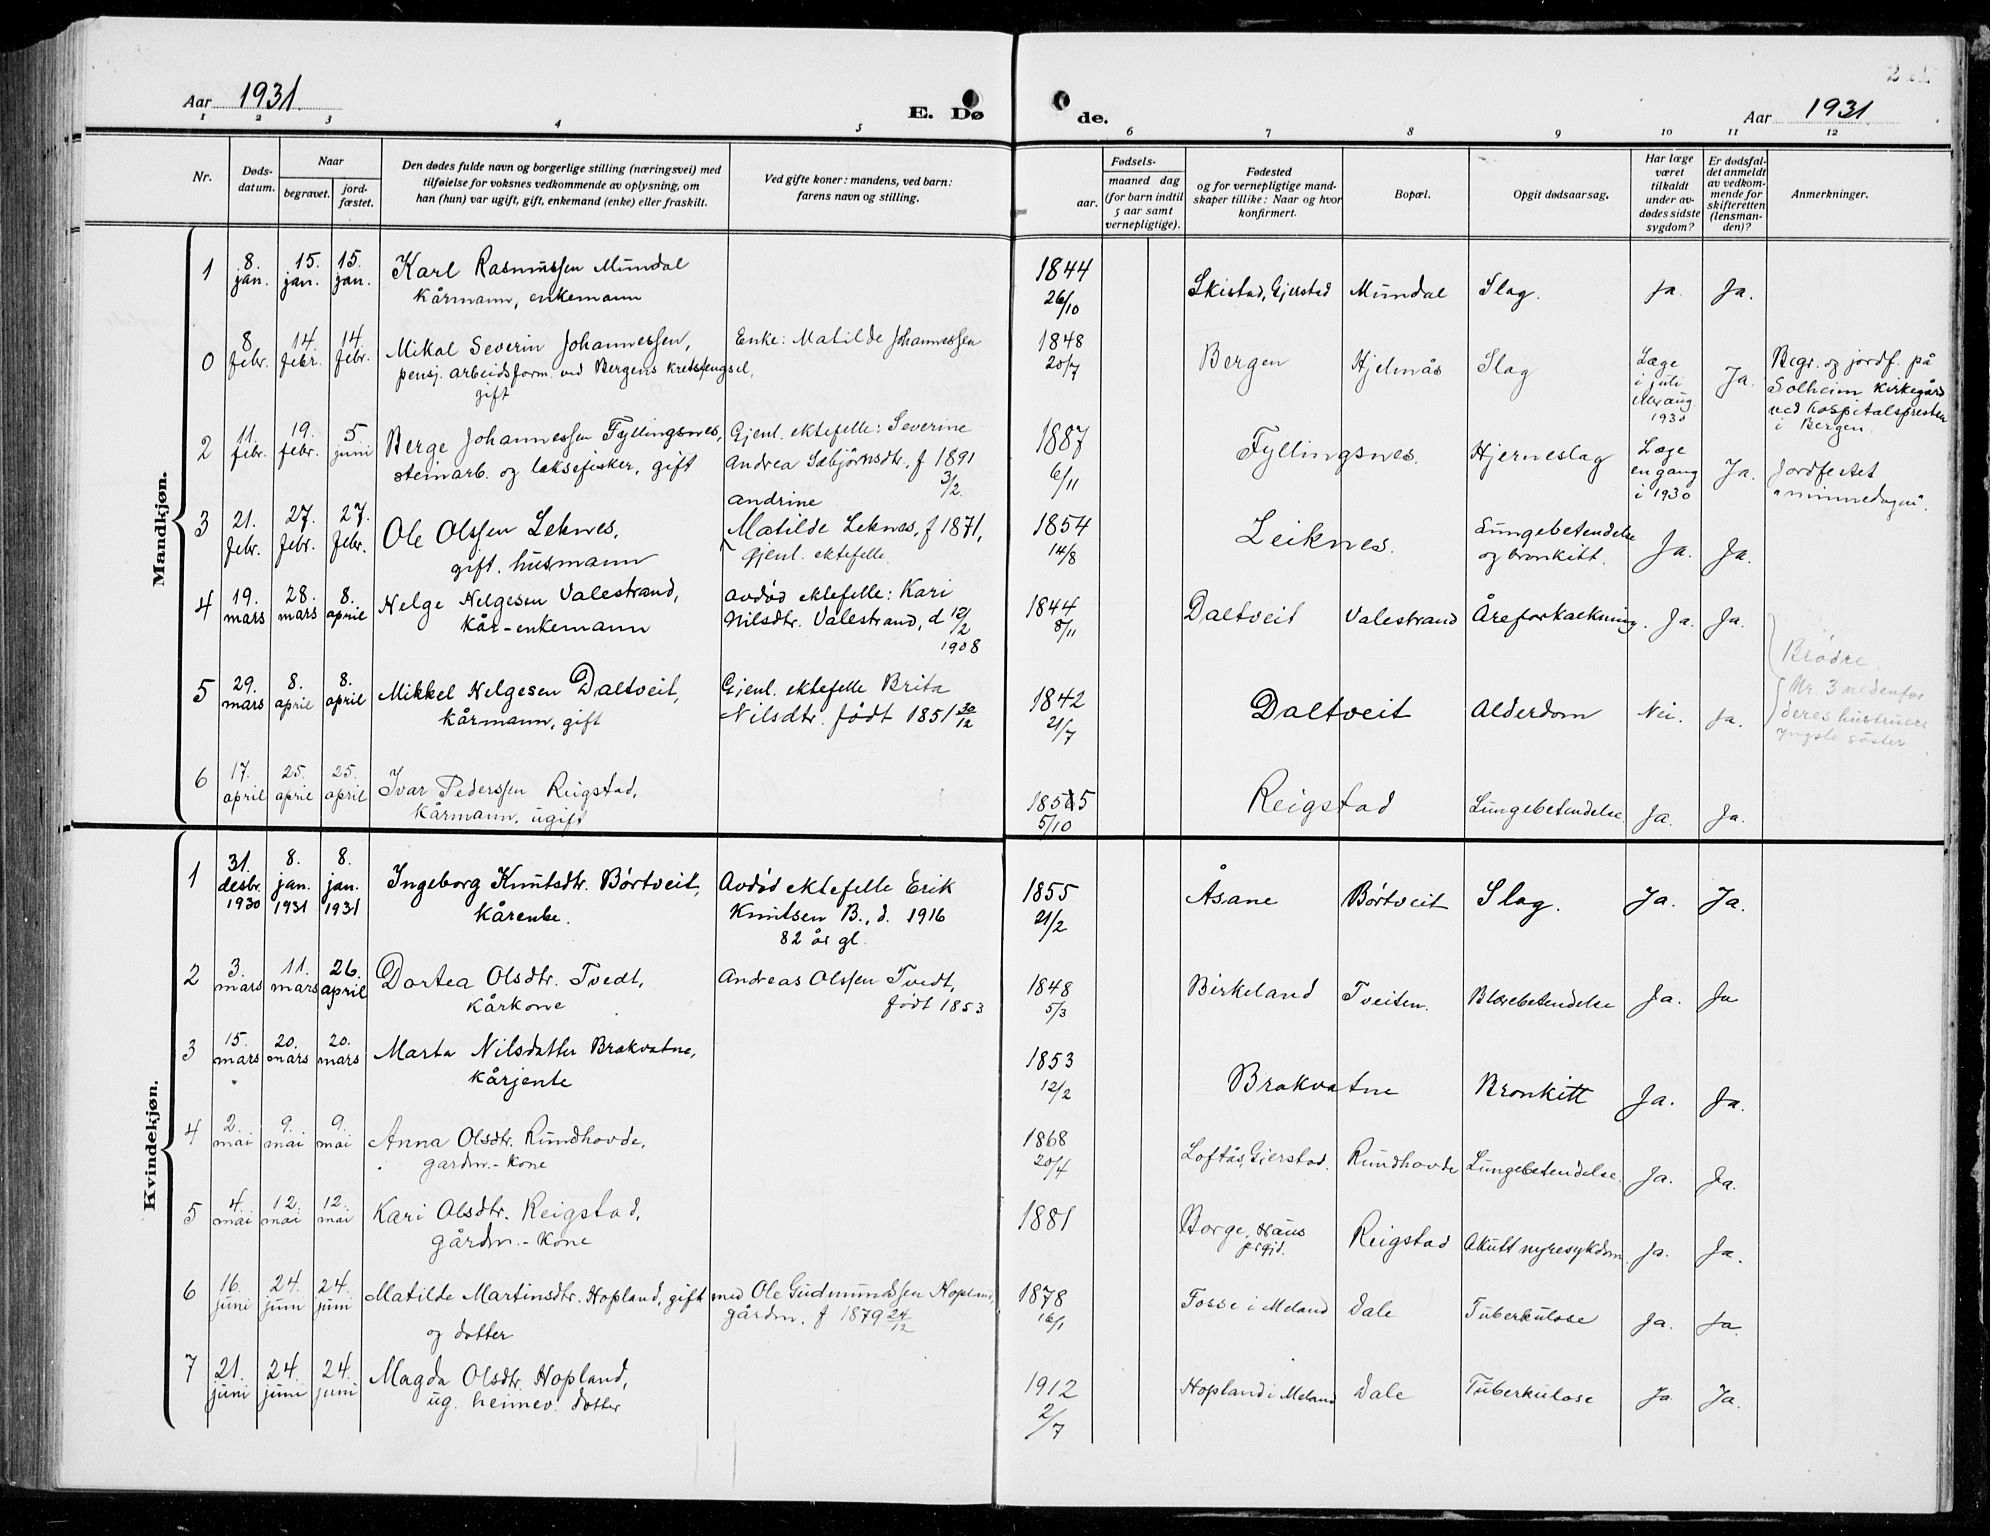 Aar 1931.
E. Dø
de.
Aar 1931.
1 2 3 4 5 6 7 8 9 10 11 12
Nr.
Døds-
datum.
Naar
begravet.
jord-
fæstet.
Den dødes fulde navn og borgerlige stilling (næringsvei) med
tilføielse for voksnes vedkommende av oplysning, om
han (hun) var ugift, gift, enkemand (enke) eller fraskilt.
Ved gifte koner: mandens, ved barn:
farens navn og stilling.
Fødsels-
aar.
maaned dag
(for barn indtil
5 aar samt
vernepligtige).
Fødested
og for vernepligtige mand-
skaper tillike: Naar og hvor
konfirmert.
Bopæl.
Opgit dødsaarsag.
Har læge
været
tilkaldt
under av-
dødes sidste
sygdom?
Er dødsfal-
det anmeldt
av vedkom-
mende for
skifteretten
(lensman-
den)?
Anmerkninger.
Mandkjøn.
1 8. jan. 15. jan. 15. jan. Karl Rasmussen Mundal 1844 Skistad, Gjerstad Mundal Slag. Ja. Ja.
kårmann, enkemann 26/10
0 8 febr. 14. febr. 14. febr. Mikal Severin Johannessen, Enke: Matilde Johannessen 1848 Bergen Hjelmås Slag Læge Ja. Begr. og jordf. på
pensj. arbeidsform. ved Bergens kretsfengsel, 20/7 i juli Solheim kirkegård
gift aug. 1930 ved hospitalspresten
i Bergen.
2 11. febr. 19. febr. 5 juni Berge Johannessen Fyllingsnes, Gjenl. ektefelle: Severine 1887 Fyllingsnes. Hjerneslag Læge Ja. Jordfestet
steinarb. og laksefisker, gift Andrea Sæbjörnsdtr. f 1891 6/11 en gang
3/2. i 1930
andrine
3 21. febr. 27. febr. 27. febr. Ole Olssen Leknes, Matilde Leknes, f 1871, 1854 Leiknes. Lungebetendelse Ja. Ja.
gift. husmann gjenl. ektefelle. 14/8 og bronkitt.
4 19. mars 28. mars 8. april Helge Helgesen Valestrand, Avdød ektefelle: Kari 1844 Daltveit Valestrand Åreforkalkning. Ja. Ja.
kår-enkemann Nilsdtr. Valestrand, d 12/2 8/11
1908
Brødre.
5 29. mars 8. april 8. april Mikkel Helgesen Daltveit, Gjenl. ektefelle Brita 1842 Daltveit Alderdom Nei. Ja. Nr. 3 nedenfor
kårmann, gift Nilsdtr. født 1851 30/12 21/7 deres hustruers
yngste søster
6 17. april 25. april 25. april Ivar Pederssen Reigstad, 1855 Reigstad Lungebetendelse. Ja. Ja.
kårmann, ugift 5/10
Kvindekjøn.
1 31. desbr. 1930 8. jan. 1931 8. jan. 1931 Ingeborg Knutsdtr. Børtveit, Avdød ektefelle Erik 1855 Åsane Børtveit Slag. Ja. Ja.
kårenke. Knutsen B., d. 1916 21/2
82 år gl.
2 3. mars 11. mars 26. april Dortea Olsdtr. Tvedt, Andreas Olssen Tvedt, 1848 Birkeland Tveiten. Blærebetendelse Ja. Ja
kårkone født 1853 5/3
3 15. mars 20. mars 20. mars Marta Nilsdatter Brakvatne, 1853 Brakvatne Bronkitt Ja. Ja.
kårjente 12/2
4 2. mai 9. mai 9. mai Anna Olsdtr. Rundhovde, 1868 Loftås, Gjerstad. Rundhovde Lungebetendelse. Ja. Ja.
gardm.-kone 20/4
5 4. mai 12. mai 12. mai Kari Olsdtr. Reigstad, 1881 Borge, Haus Reigstad Akutt nyresykdom Ja. Ja.
gårdm.-kone prgjd.
6 16. juni 24. juni 24. juni Matilde Martinsdtr. Hopland, gift med Ole Gudmundssen Hopland, 1878 Fosse i Meland Dale Tuberkulose Ja. Ja.
og dotter gårdm. f 1879 24/12 16/1
7 21. juni 24. juni 24. juni Magda Olsdtr. Hopland, 1912 Hopland i Meland Dale Tuberkulose Ja Ja.
ug. heimev. dotter 2/7